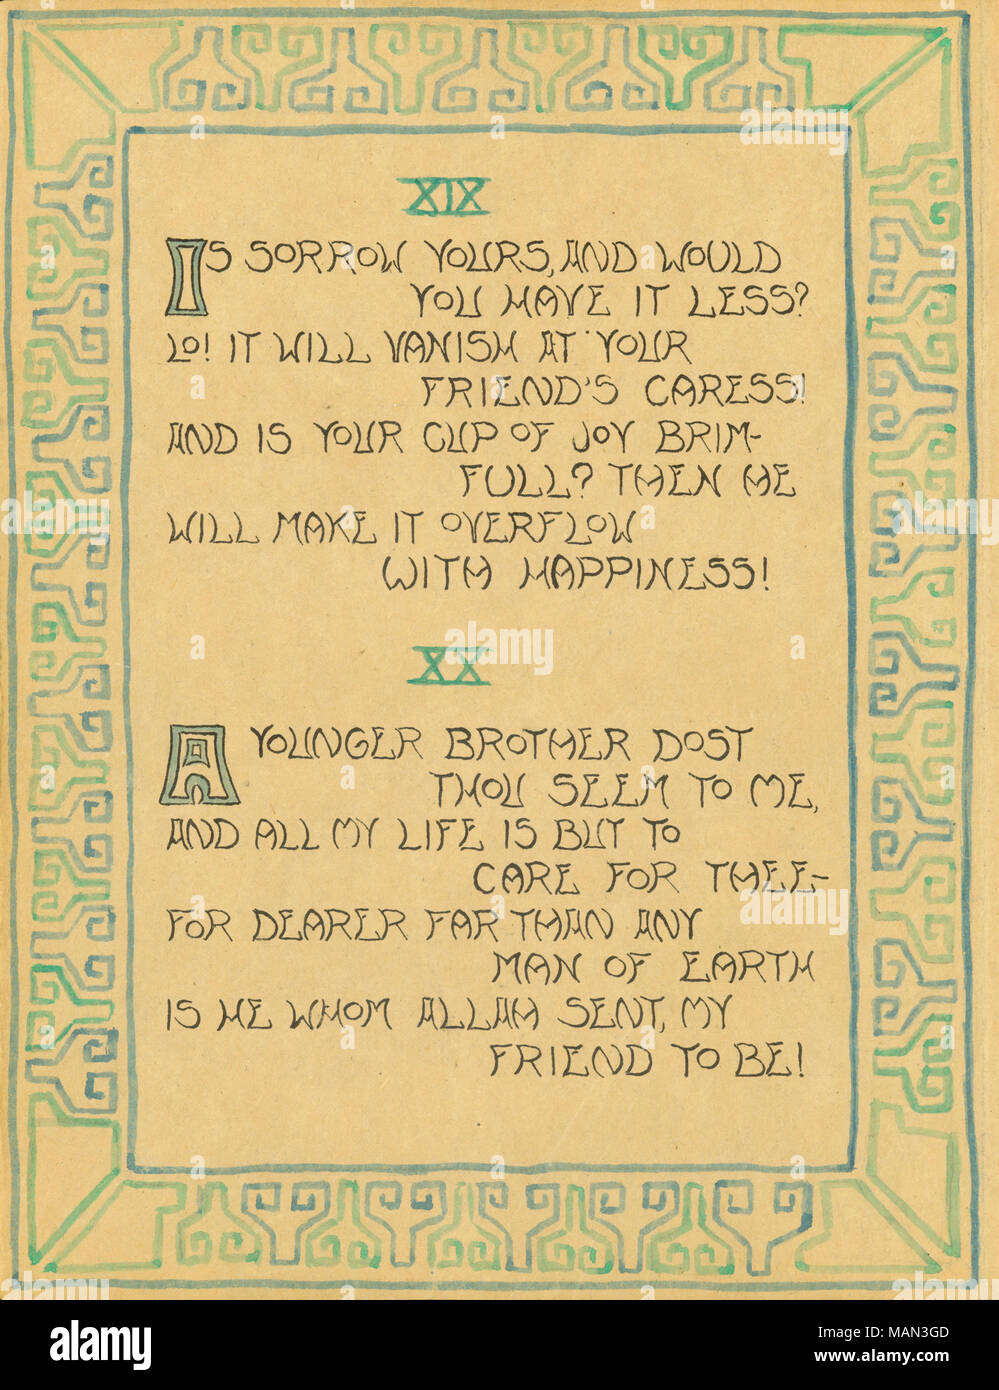 XIX
IS SORROW YOURS, AND WOULD
YOU HAVE IT LESS?
LO! IT WILL VANISH AT YOUR
FRIEND'S CARESS!
AND IS YOUR CUP OF JOY BRIM-
FULL? THEN HE
WILL MAKE IT OVERFLOW
WITH HAPPINESS!
XX
A YOUNGER BROTHER DOST
THOU SEEM TO ME,
AND ALL MY LIFE IS BUT TO
CARE FOR THEE-
FOR DEARER FAR THAN ANY
MAN OF EARTH
IS HE WHOM ALLAH SENT, MY
FRIEND TO BE!
alamy
Image ID: MAN3GD
www.alamy.com